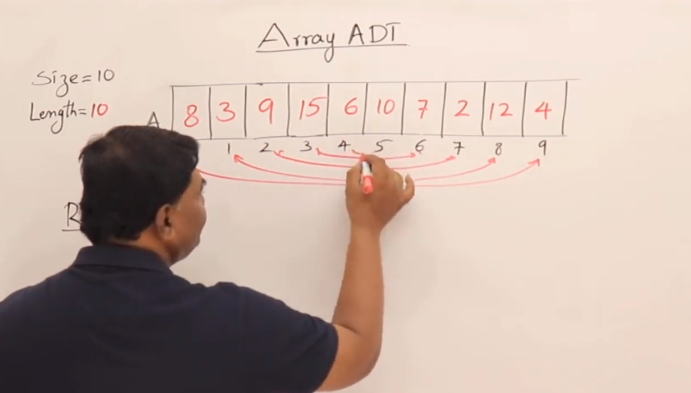 Array ADT
Size=10
Length=10
A 8 3 9 15 6 10 7 2 12 4
1 2 3 4 5 6 7 8 9
R